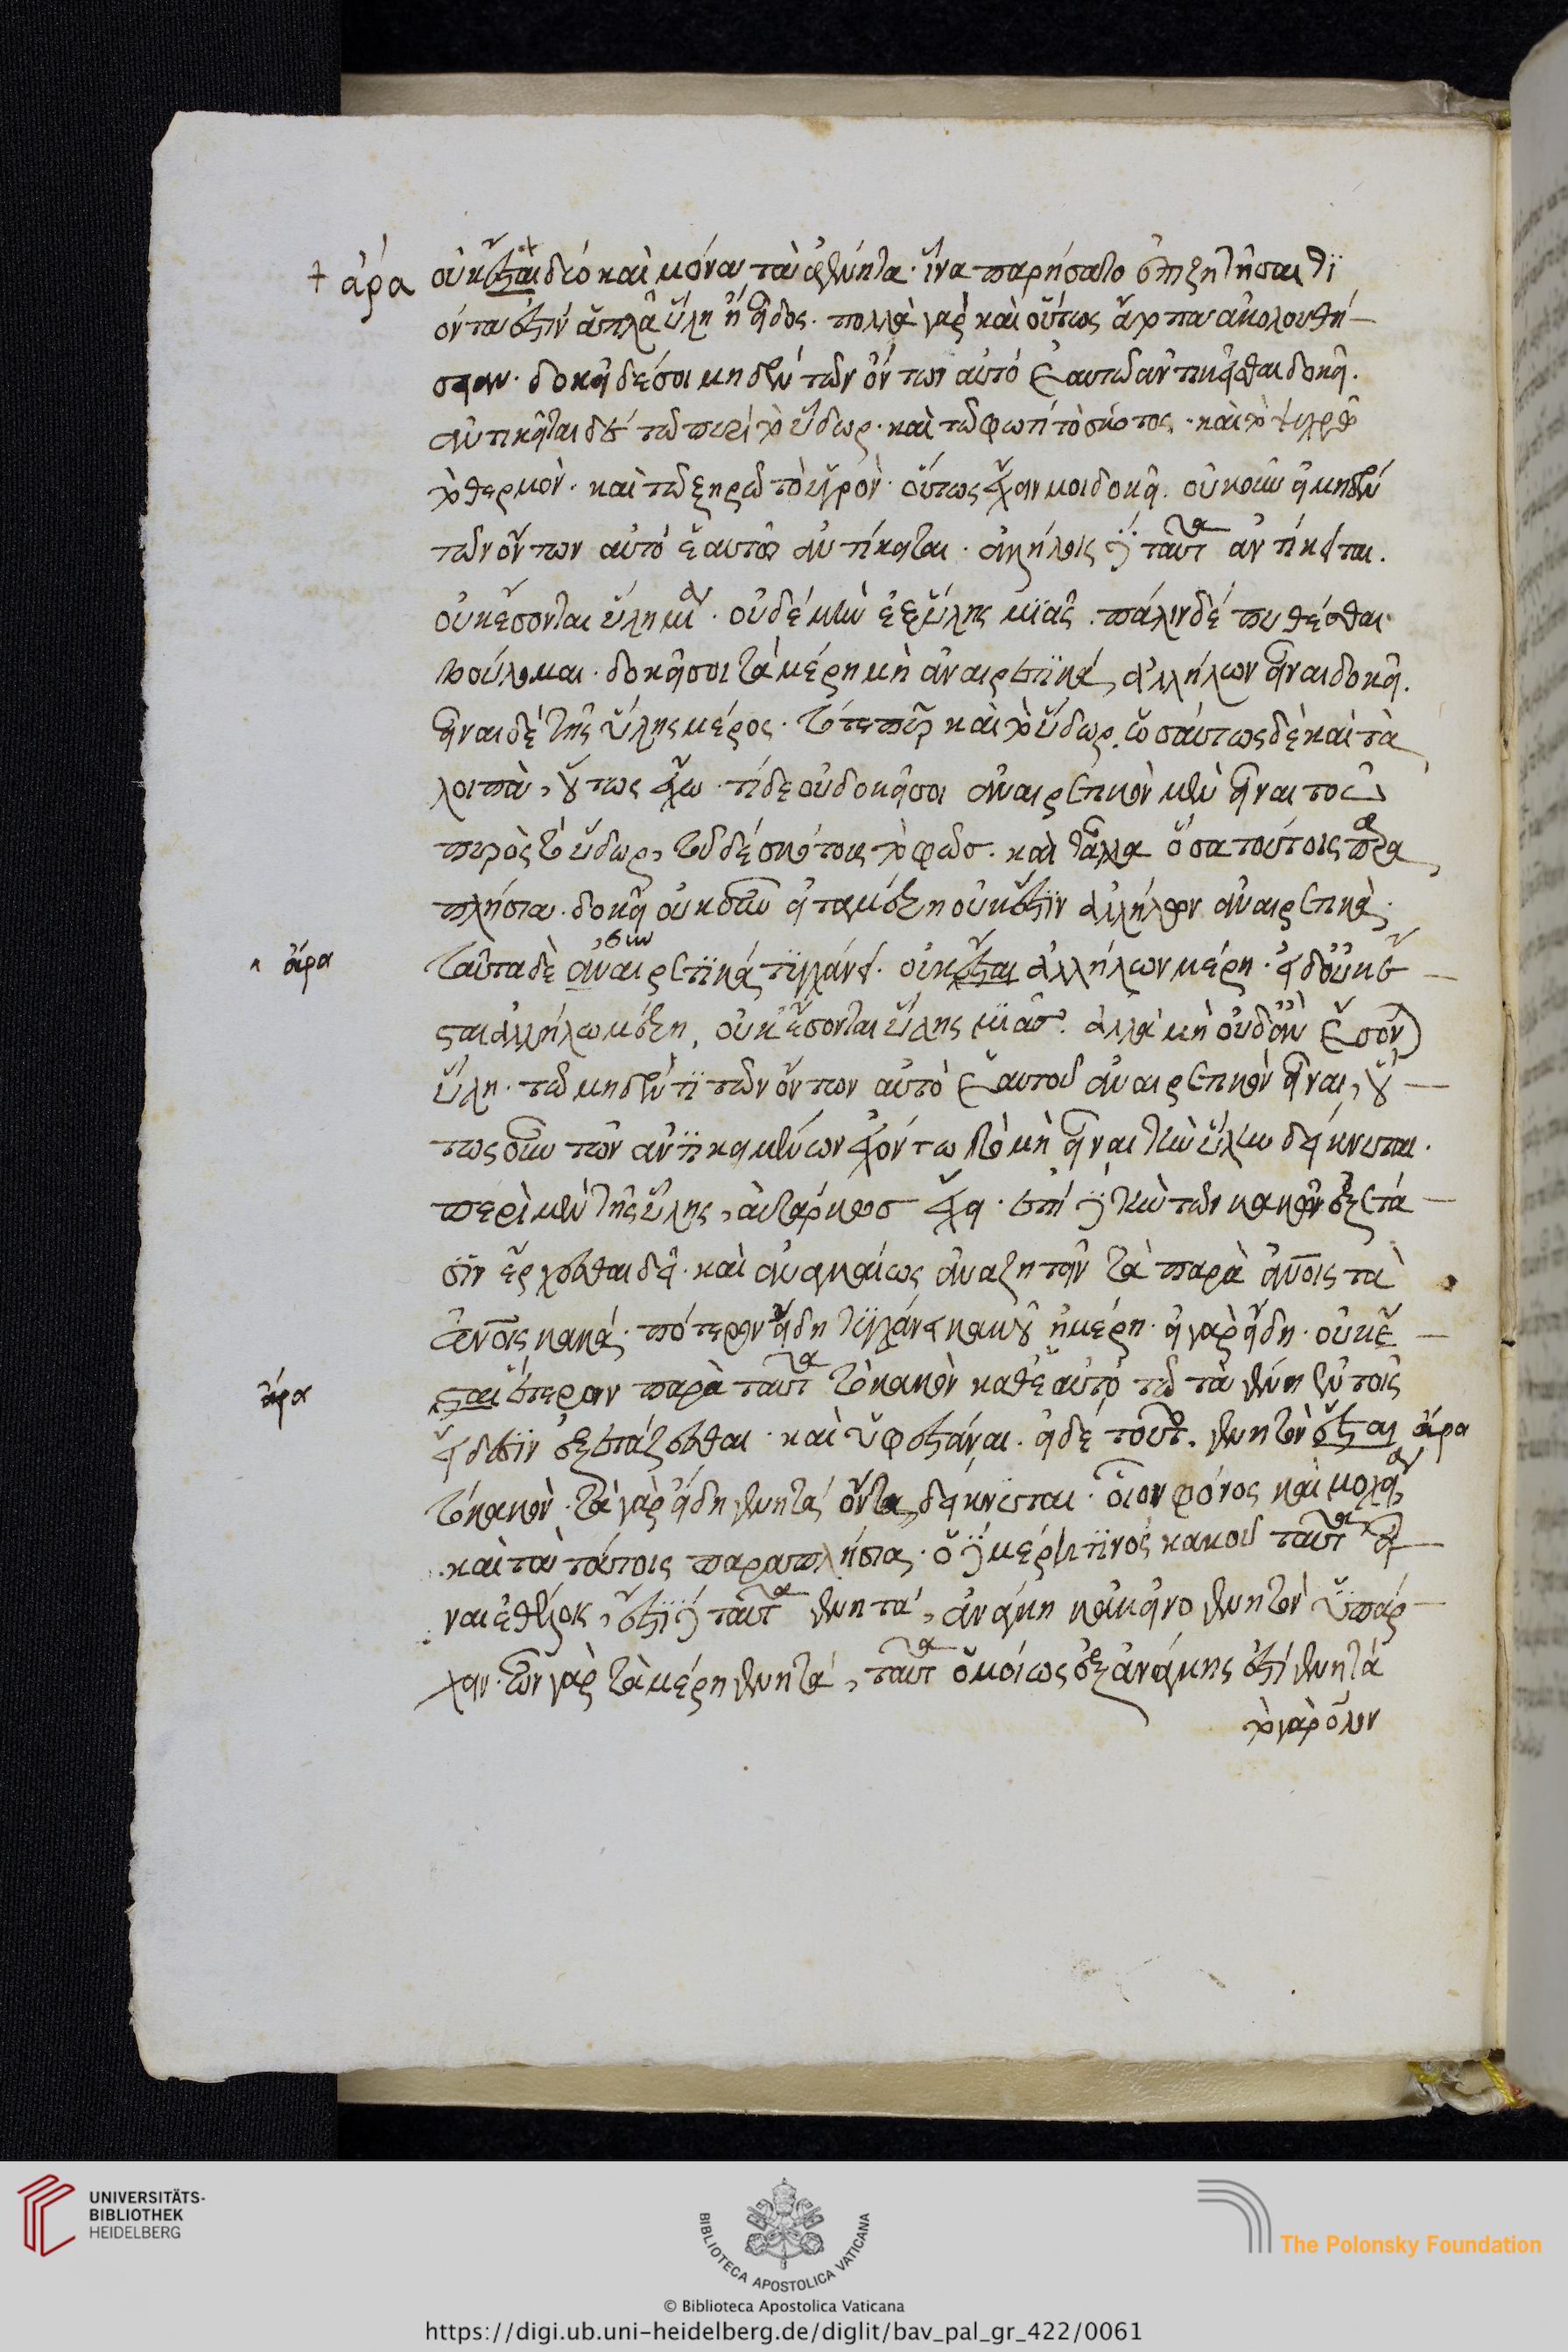 † ἄρα οὐκ ἔσται διό καὶ μόνα τὰ ἀγένητα· ἵνα παρήσω το ἐπιζητῆσαι τί
ὄντα ἐστὶν ἁπλᾶ ὕλη ἢ εἶδος. πολλὰ γὰρ καὶ οὕτως ἄτοπα ἀκολουθή-
σειεν. δοκεῖ δέ σοι μηδὲν τῶν ὄντων αὐτό ἑαυτῶ ἀντικεῖσθαι δοκεῖ.
ἀντικεῖται δὲ τῶ πυρὶ τὸ ὕδωρ. καὶ τῶ φωτὶ τὸ σκότος. καὶ τὸ ψυχρῶ
τὸ θερμόν. καὶ τῶ ξηρῶ τὸ ὑγρόν. οὕτως ἔχειν μοι δοκεῖ. οὐκοῦν εἰ μηδὲν
τῶν ὄντων αὐτὸ ἑαυτῶ ἀντίκειται. ἀλλήλοις δὲ ταῦτα ἀντίκειται.
οὐκ ἔσονται ὕλη μία. οὐδὲ μὴν ἐξ ὕλης μιᾶς. πάλιν δέ πυθέσθαι
βούλομαι. δοκεῖ σοι τὰ μέρη μὴ ἀναιρετικά, ἀλλήλων εἶναι δοκεῖ.
εἶναι δὲ τῆς ὕλης μέρος. τό τε πῦρ καὶ τὸ ὕδωρ, ὡσαύτως δὲ καὶ τὰ
λοιπὰ, οὕτως ἔχω. τί δε οὐ δοκεῖ σοι ἀναιρετικὸν μὲν εἶναι τοῦ
πυρὸς τὸ ὕδωρ, τοῦ δὲ σκότους τὸ φῶς. καὶ τἄλλα ὅσα τούτοις παρα
πλήσια. δοκεῖ οὐκοῦν εἰ τὰ μέρη οὐκ ἔστιν ἀλλήλων ἀναιρετικὰ.
ἄρα ταῦτα δὲ ἀναιρετικά τυγχάνει. οὐκ ἔσται ἀλλήλων μέρη. εἰ δὲ οὐκ ἔ-
σται ἀλλήλων μέρη, οὐκ ἔσονται ὕλης μιᾶς. ἀλλὰ μὴν οὐδ᾽ ἂν ἔσονται
ὕλη. τῶ μηδέν τι τῶν ὄντων αὐτὸ ἑαυτοῦ ἀναιρετικὸν εἶναι, οὕ-
τως οὖν τῶν ἀντικειμένων ἐχόντων τὸ μὴ εἶναι τὴν ὕλην δείκνυται.
περὶ μὲν τῆς ὕλης, αὐτάρκως ἔχει. ἐπὶ δὲ τὴν τῶν κακῶν ἐξέτα-
σιν ἔρχεσθαι δεῖ. καὶ ἀναγκαίως ἀναζητεῖν τὰ παρὰ ἀνοις τὰ
ἐν ἀνοις κακά. πότερον εἴδη τυγχάνει κακοῦ ἢ μέρη. εἰ γὰρ εἴδη. οὐκ ἔ-
ἄρα σται ἕτερον παρὰ ταῦτα τὸ κακὸν καθ᾽ ἑαυτὸ τῶ τὰ γένη ἐν τοῖς
εἴδεσιν ἐξετάζεσθαι. καὶ ὑφεστάναι. εἰ δὲ τοῦτο. γενητὸν ἔσται ἄρα
τὸ κακὸν. τὰ γὰρ εἴδη γενητὰ ὄντα, δείκνυται. οἷον φόνος καὶ μοιχεία,
καὶ τὰ τούτοις παραπλήσια. εἰ δὲ μέρη τινός κακοῦ ταῦτα εἶ-
ναι ἐθέλοις, ἔστι δὲ ταῦτα γενητά, ἀνάγκη κἀκεῖνο γενητὸν ὑπάρ-
χειν. ὧν γὰρ τὰ μέρη γενητά, ταῦτα ὁμοίως ἐξ ἀνάγκης ἐστὶ γενητά
τὸ γὰρ ὅλον
UNIVERSITÄTS-
BIBLIOTHEK
HEIDELBERG
BIBLIOTECA APOSTOLICA VATICANA
The Polonsky Foundation
© Biblioteca Apostolica Vaticana
https://digi.ub.uni-heidelberg.de/diglit/bav_pal_gr_422/0061